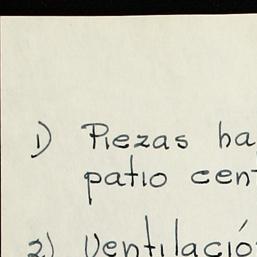 1) Piezas ha
patio cen
2) Ventilació